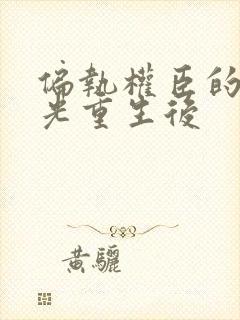 偏執權臣的
光重生後
黃驪